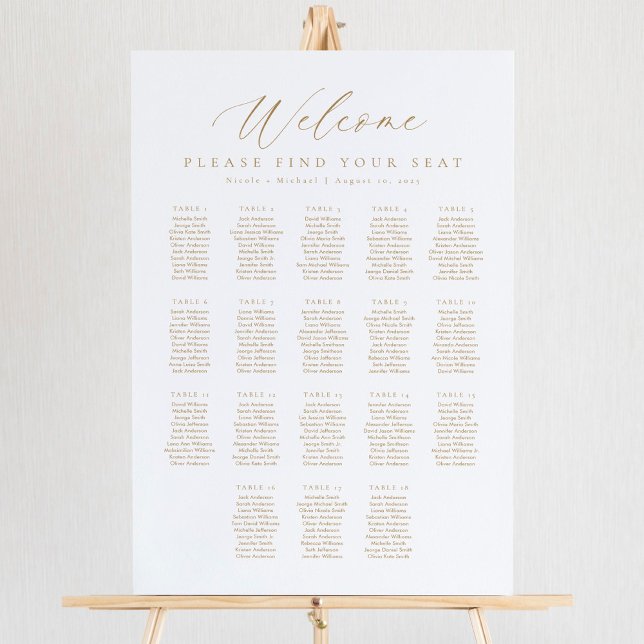 Welcome
PLEASE FIND YOUR SEAT
Nicole + Michael | August 10, 2025
TABLE 1
Michelle Smith
Jeorge Smith
Olivia Kate Smith
Kristen Anderson
Oliver Anderson
Jack Anderson
Sarah Anderson
Liana Williams
Seth Williams
David Williams
TABLE 2
Jack Anderson
Sarah Anderson
Liana Jessica Williams
Sebastian Williams
David Williams
Michelle Smith
Jeorge Smith Jr.
Jennifer Smith
Kristen Anderson
Oliver Anderson
TABLE 3
David Williams
Michelle Smith
Jeorge Smith
Olivia Maria Smith
Jennifer Anderson
Sarah Anderson
Liana Williams
Sam Michael Williams
Kristen Anderson
Oliver Anderson
TABLE 4
Jack Anderson
Sarah Anderson
Liana Williams
Sebastian Williams
Kristen Anderson
Oliver Anderson
David Williams
Michelle Smith
Jeorge Daniel Smith
Olivia Kate Smith
TABLE 5
Jack Anderson
Sarah Anderson
Liana Williams
Alexander Williams
Kristen Anderson
Oliver Jason Anderson
David Mitchel Williams
Michelle Smith
Jeorge Smith
Olivia Nicole Smith
TABLE 6
Sarah Anderson
Liana Williams
Jennifer Williams
Kristen Anderson
Oliver Anderson
David Williams
Michelle Smith
Jeorge Jefferson
Anna-Leiez Smith
Jack Anderson
TABLE 7
Liana Williams
Dennis Williams
David Williams
Jennifer Anderson
Sarah Anderson
Michelle Smith
Jeorge Jefferson
Olivia Jefferson
Kristen Anderson
Oliver Anderson
TABLE 8
Jennifer Anderson
Sarah Anderson
Liana Williams
Alexander Jefferson
David Jason Williams
Michelle Smitheon
Jeorge Smith
Olivia Smith
Kristen Anderson
Oliver Anderson
TABLE 9
Michelle Smith
Jeorge Michael Smith
Olivia Nicole Smith
Kristen Anderson
Oliver Anderson
Jack Anderson
Sarah Anderson
Rebecca Williams
Seth Jefferson
David Williams
TABLE 10
Michelle Smith
Jeorge Smith
Olivia Jefferson
Kristen Jefferson
Oliver Anderson
Sarah Anderson
Ann Nicole Williams
Dorian Williams
David Williams
TABLE 11
David Williams
Michelle Smith
Jeorge Smith
Olivia Jefferson
Jack Anderson
Sarah Anderson
Liana Ann Williams
Maksimilian Williams
Kristen Anderson
Oliver Anderson
TABLE 12
Jack Anderson
Sarah Anderson
Liana Williams
Sebastian Williams
Kristen Anderson
Oliver Anderson
Alexander Williams
Michelle Smith
Jeorge Daniel Smith
Olivia Kate Smith
TABLE 13
Jack Anderson
Sarah Anderson
Lia Jessica Williams
Sebastian Williams
David Jefferson
Michelle Ann Smith
Jeorge Smith Jr.
Jennifer Smith
Kristen Anderson
Oliver Anderson
TABLE 14
Jennifer Anderson
Sarah Anderson
Liana Williams
Alexander Jefferson
David Jason Williams
Michelle Smith
Jeorge Smith
Olivia Smith
Kristen Anderson
Oliver Anderson
TABLE 15
David Williams
Michelle Smith
Jeorge Smith
Olivia Maria Smith
Jennifer Anderson
Sarah Anderson
Liana Williams
Michael Williams Jr.
Kristen Anderson
Oliver Anderson
TABLE 16
Jack Anderson
Sarah Anderson
Liana Williams
Sebastian Williams
Tom David Williams
Michelle Smith
Jeorge Smith Jr.
Jennifer Smith
Kristen Anderson
Oliver Anderson
TABLE 17
Michelle Smith
Jeorge Smith
Olivia Nicole Smith
Kristen Anderson
Oliver Anderson
Jack Anderson
Sarah Anderson
Rebecca Williams
Seth Jefferson
David Williams
TABLE 18
Jack Anderson
Sarah Anderson
Liana Williams
Sebastian Williams
Kristen Anderson
Oliver Anderson
Alexander Williams
Michelle Smith
Jeorge Daniel Smith
Olivia Kate Smith